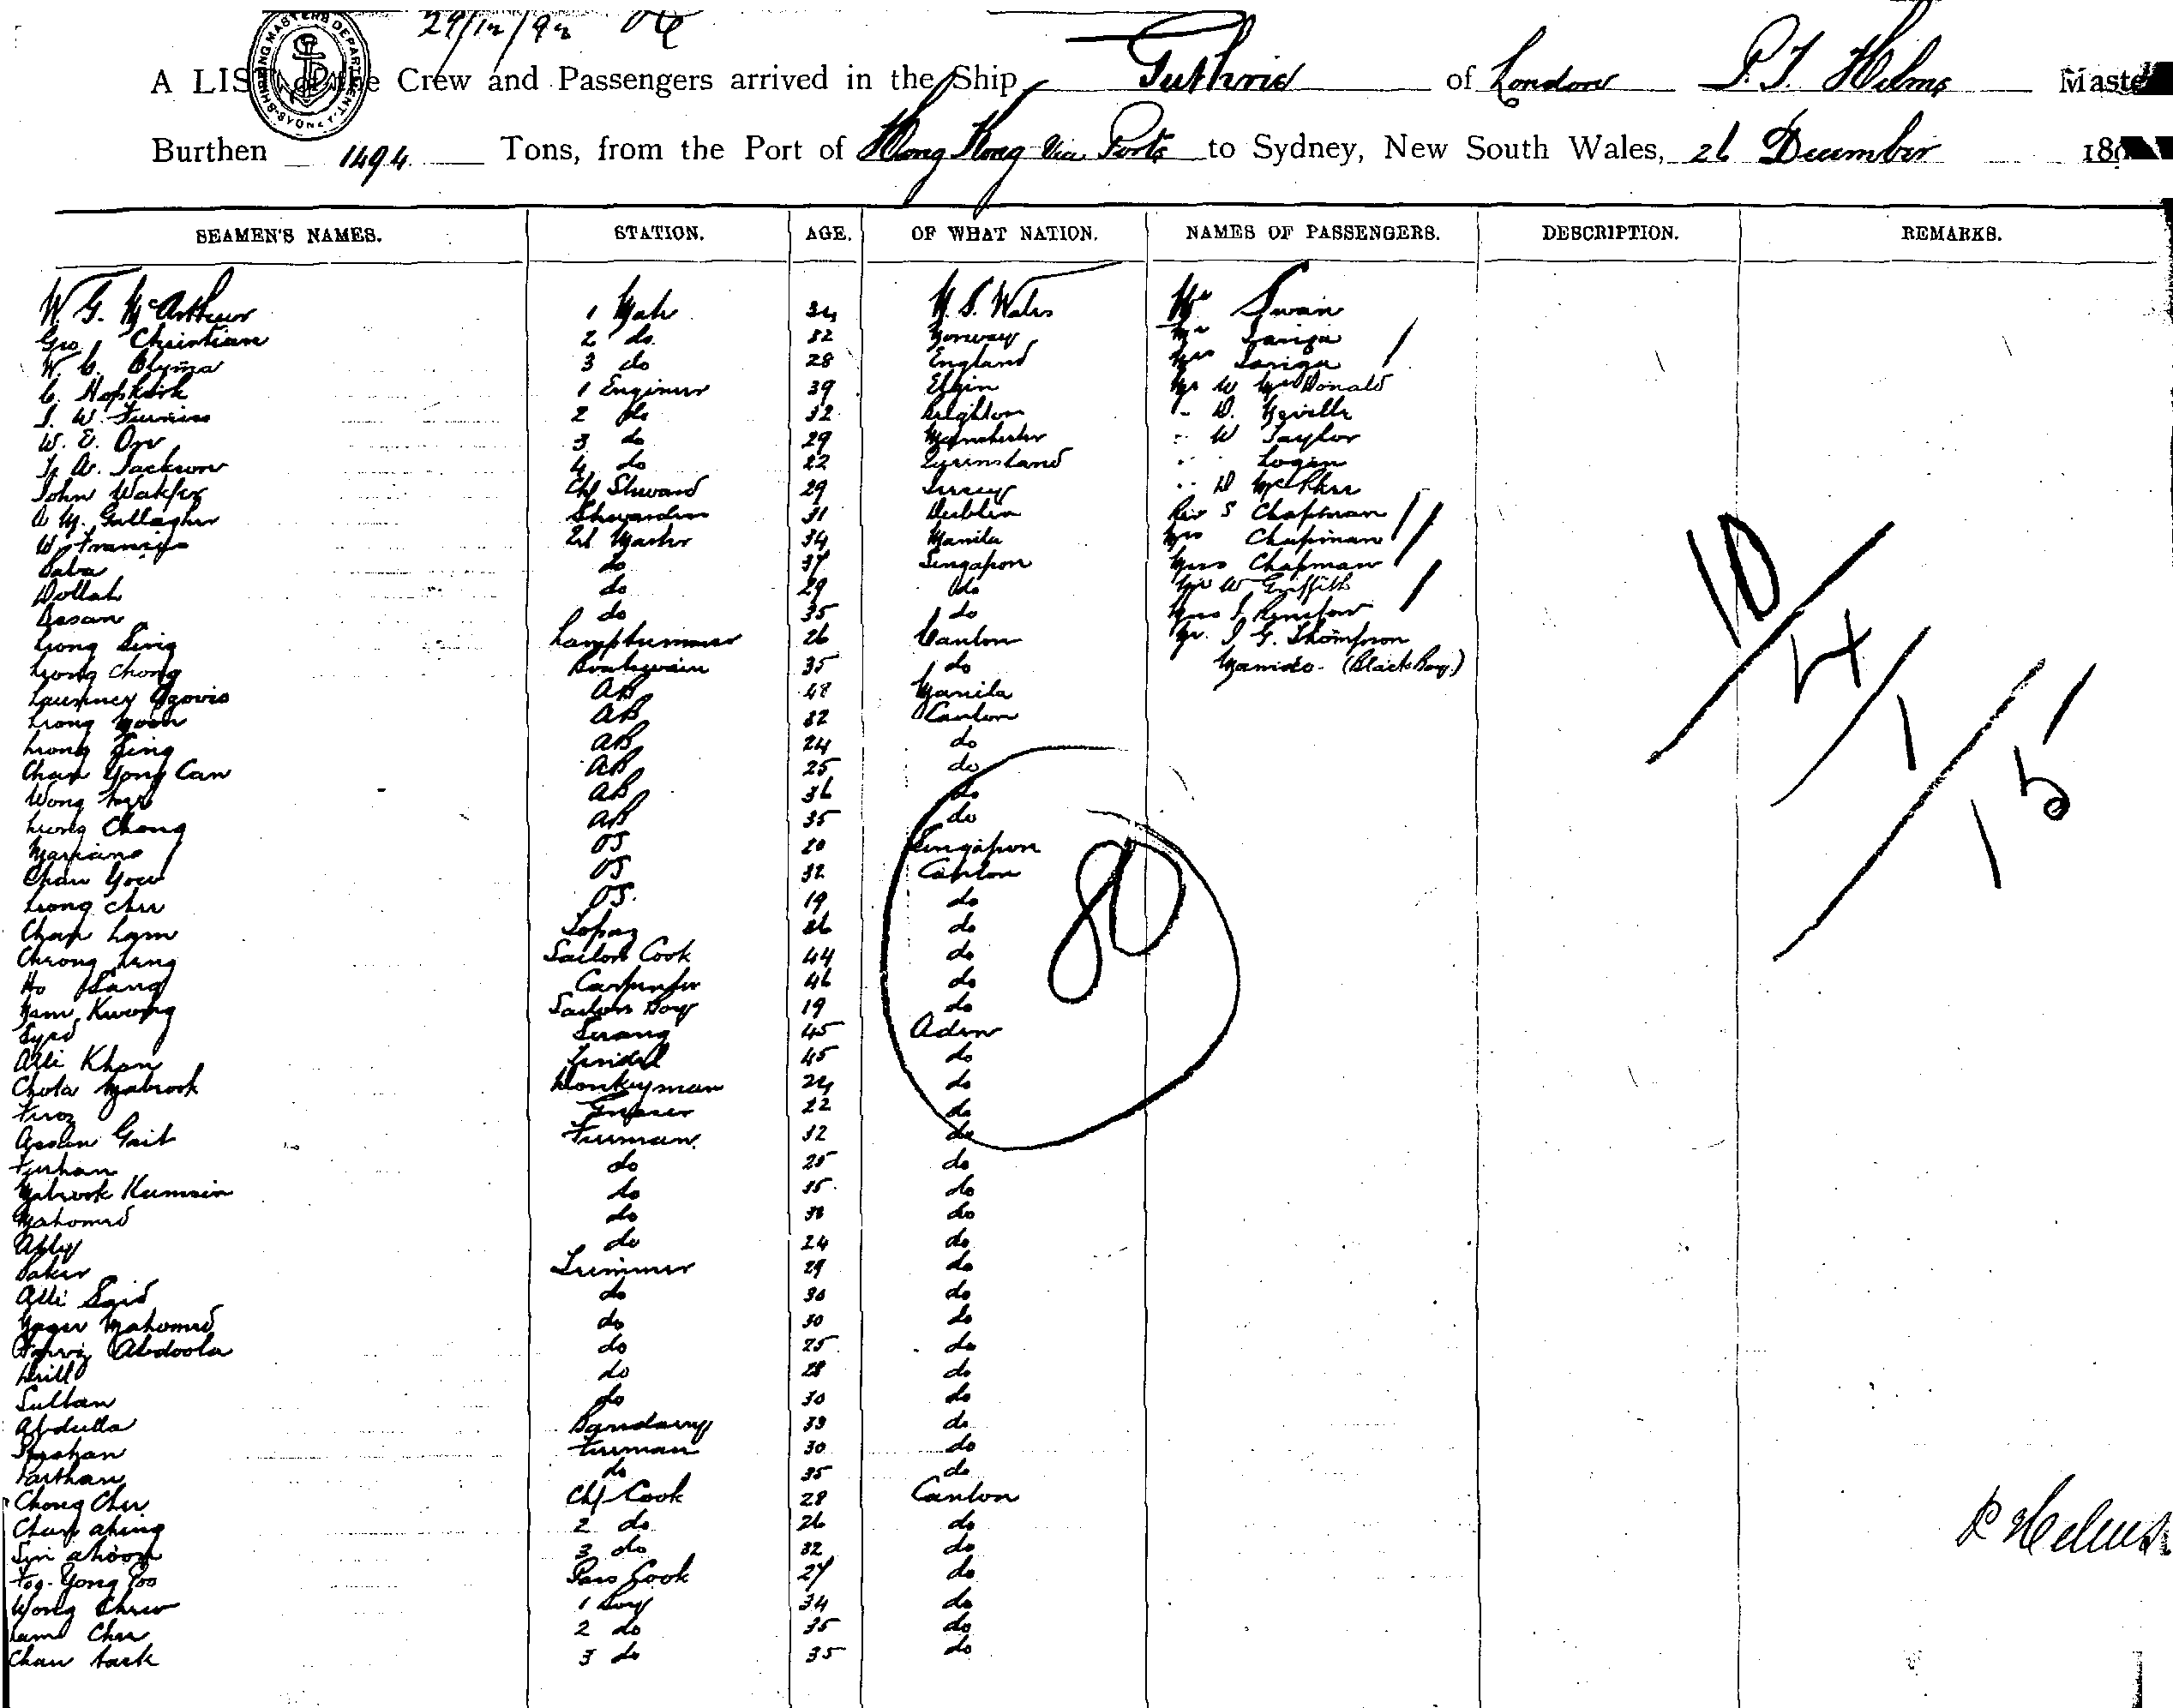 29/12/92
SHIPPING MASTERS DEPARTMENT SYDNEY
A LIST of the Crew and Passengers arrived in the Ship Guthrie of London P. T. Helms Maste
Burthen 1494 Tons, from the Port of Hong Kong via Ports to Sydney, New South Wales, 26 December 18
SEAMEN'S NAMES. STATION. AGE. OF WHAT NATION. NAMES OF PASSENGERS. DESCRIPTION. REMARKS.
W. G. McArthur 1 Mate 34 N. S. Wales Mr Swan
Geo Christian 2 do 32 Norway Mr
W. C. 3 do 28 England Mrs
C. Hopkirk 1 Engineer 39 Elgin Mr W McDonald
J. W. Furniss 2 do 32 Brighton " D. Neville
W. E. Orr 3 do 29 Manchester " W Taylor
A. Jackson 4 do 22 Queensland " Logan
John Chf Steward 29 " D McPhee
A M. Gallagher Stewardess 31 Dublin Rev S Chapman
W. Francis Qd Master 34 Manila Mrs Chapman
Baba do 37 Singapore Miss Chapman
Dollah do 29 do Mr W Griffith
Assan do 35 do Miss
Leong Sing Lamptrimmer 26 Canton Mr. J G. Thompson
Leong Chong Boatswain 35 do (Black Boy)
AB 48 Manila
Leong AB 32 Canton
Leong AB 24 do
Chan Yong Can AB 25 do
Wong AB 36 do
Leong Chong AB 35 do
Mariano OS 20 Singapore
Chan Yow OS 32 Canton
Leong Chu OS. 19 do
Chan Lam Topaz 26 do
Cheong Leng Sailors Cook 44 do
Ho Carpenter 46 do
Kwong Sailors Boy 19 do
Syed Serang 45 Aden
Alli Khan Tindal 45 do
Chota Mabrook Donkeyman 24 do
Feroz Greaser 22 do
Fireman 32 do
Furhan do 25 do
Mabrook do 35 do
Mahomed do 38 do
Ally do 24 do
Baker Trimmer 29 do
Alli Said do 30 do
Mahomed do 30 do
Abdoola do 25 do
do 28 do
Sultan do 30 do
Abdulla Bandarry 33 do
Fireman 30 do
Farthan do 35 do
Chong Chu Chf Cook 28 Canton
Chan Ahing 2 do 26 do
3 do 32 do
Yong Pass Cook 27 do
Wong Chew 1 Boy 34 do
2 do 35 do
Chan 3 do 35 do
80
10
4
1
15
P Helms